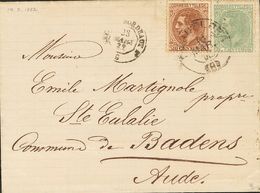 BORDEAUX
Monsieur
Emile Martignole propre
Ste Eulalie
Commune de Badens
Aude.